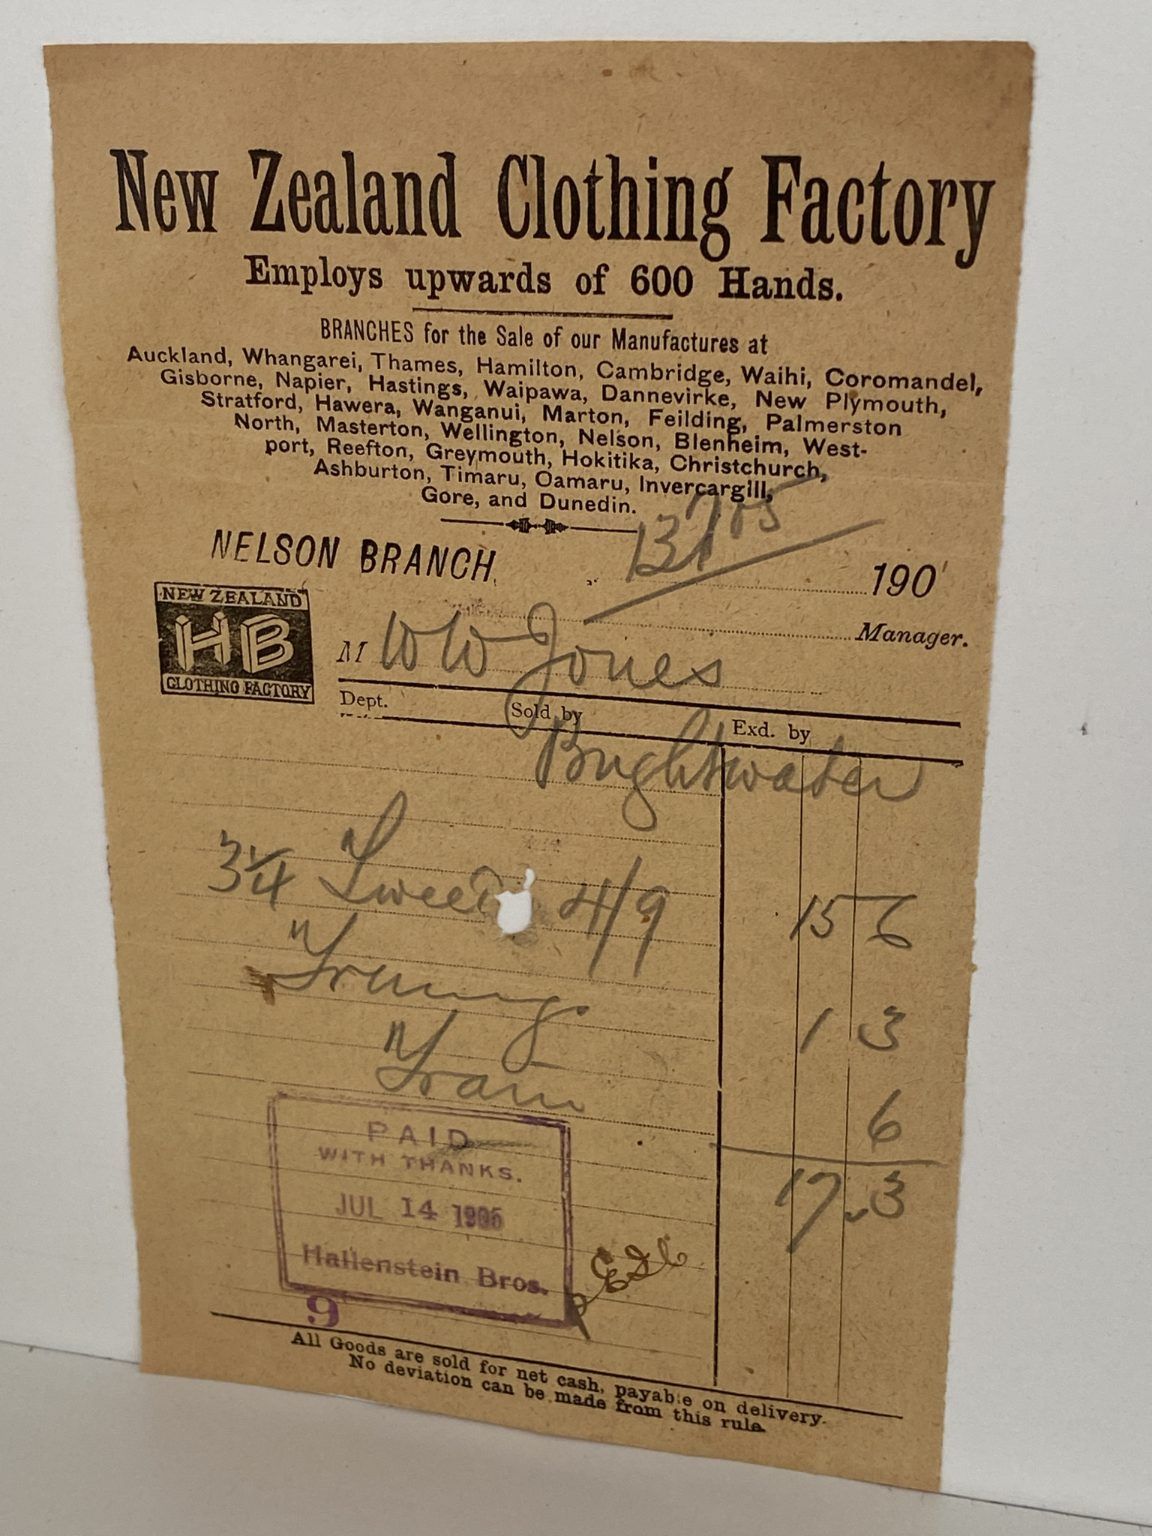 New Zealand Clothing Factory
Employs upwards of 600 Hands.
BRANCHES for the Sale of our Manufactures at
Auckland, Whangarei, Thames, Hamilton, Cambridge, Waihi, Coromandel,
Gisborne, Napier, Hastings, Waipawa, Dannevirke, New Plymouth,
Stratford, Hawera, Wanganui, Marton, Feilding, Palmerston
North, Masterton, Wellington, Nelson, Blenheim, West-
port, Reefton, Greymouth, Hokitika, Christchurch,
Ashburton, Timaru, Oamaru, Invercargill,
Gore, and Dunedin.
13/7/05
NELSON BRANCH 190
Manager.
NEW ZEALAND
HB
CLOTHING FACTORY
M W W Jones
Dept. Sold by Exd. by
Brightwater
3 1/4 Tweed 4/9 15 6
1 3
6
17 . 3
PAID
WITH THANKS.
JUL 14 1905
Hallenstein Bros.
9
All Goods are sold for net cash, payable on delivery.
No deviation can be made from this rule.